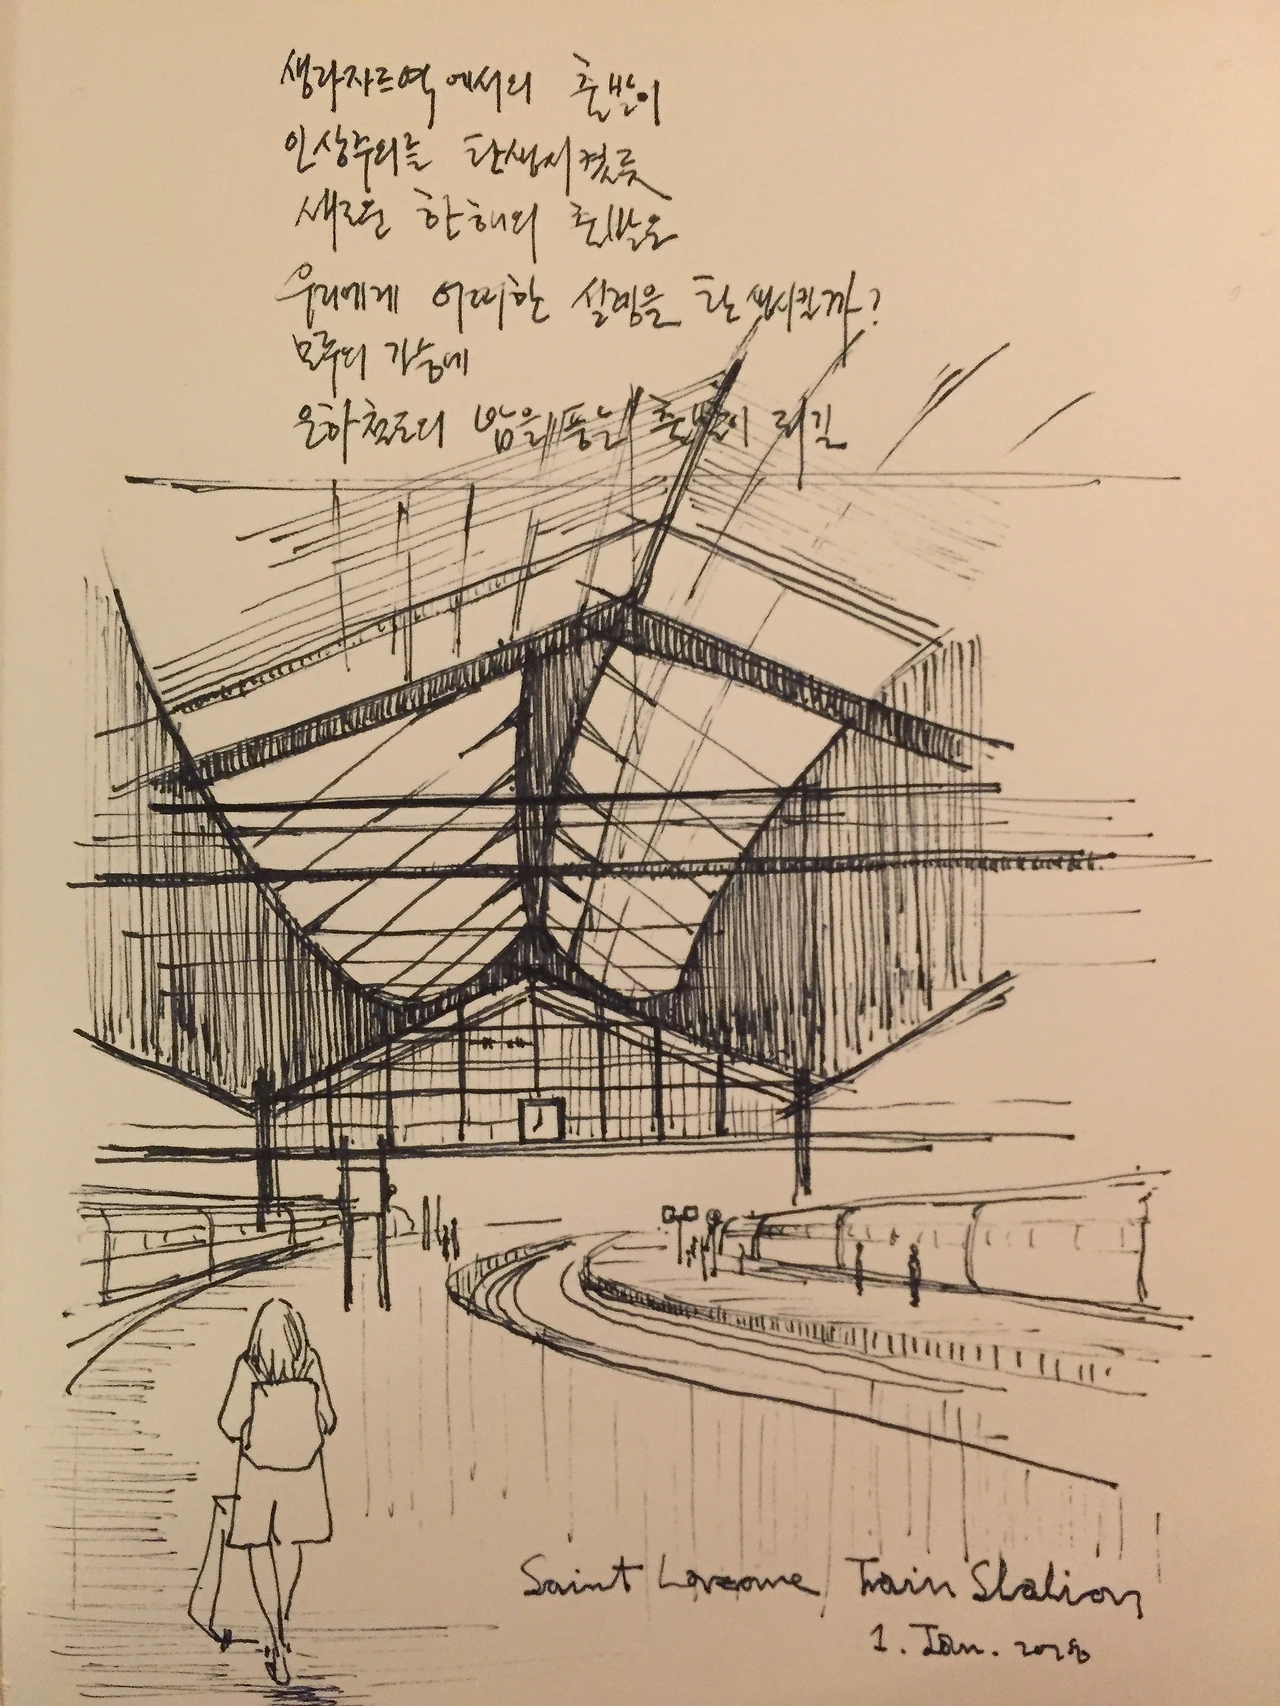 생라자르역에서의 출발이
인상주의를 탄생시켰듯
새로운 한해의 출발은
우리에게 어떠한 설렘을 탄생시킬까?
모두의 가슴에
은하철도의 밤을 품는 출발이 되길
Saint Train Station
1. Jan.